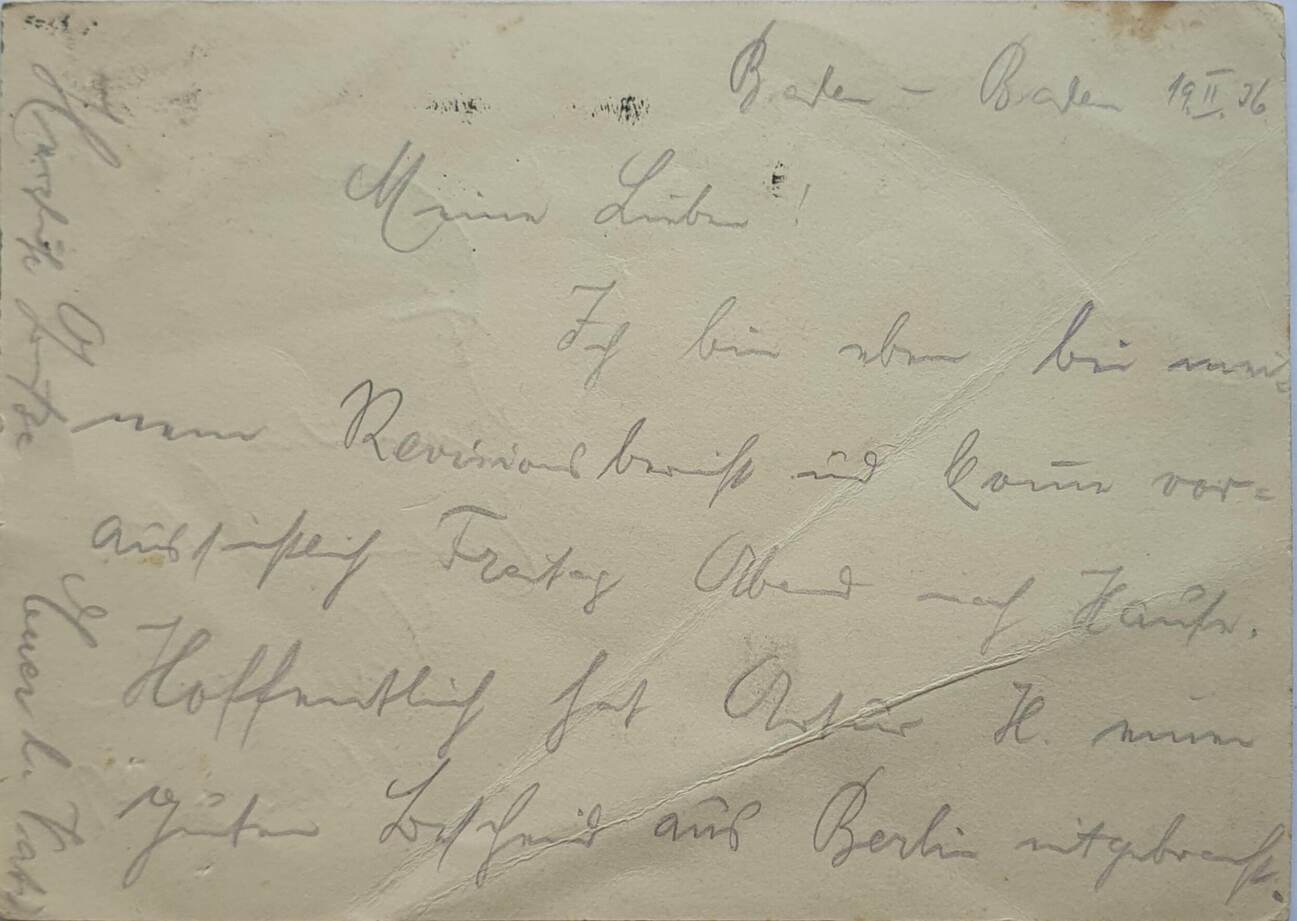 Baden-Baden 19.II.36
Meine Lieben!
Ich bin eben bei mei-
nem Revisionsbericht und komme vor=
aussichtlich Freitag Abend nach Hause.
Hoffentlich hat Artur H. einen
guten Bescheid aus Berlin mitgebracht.
Herzliche Grüße
Euer l. Vater